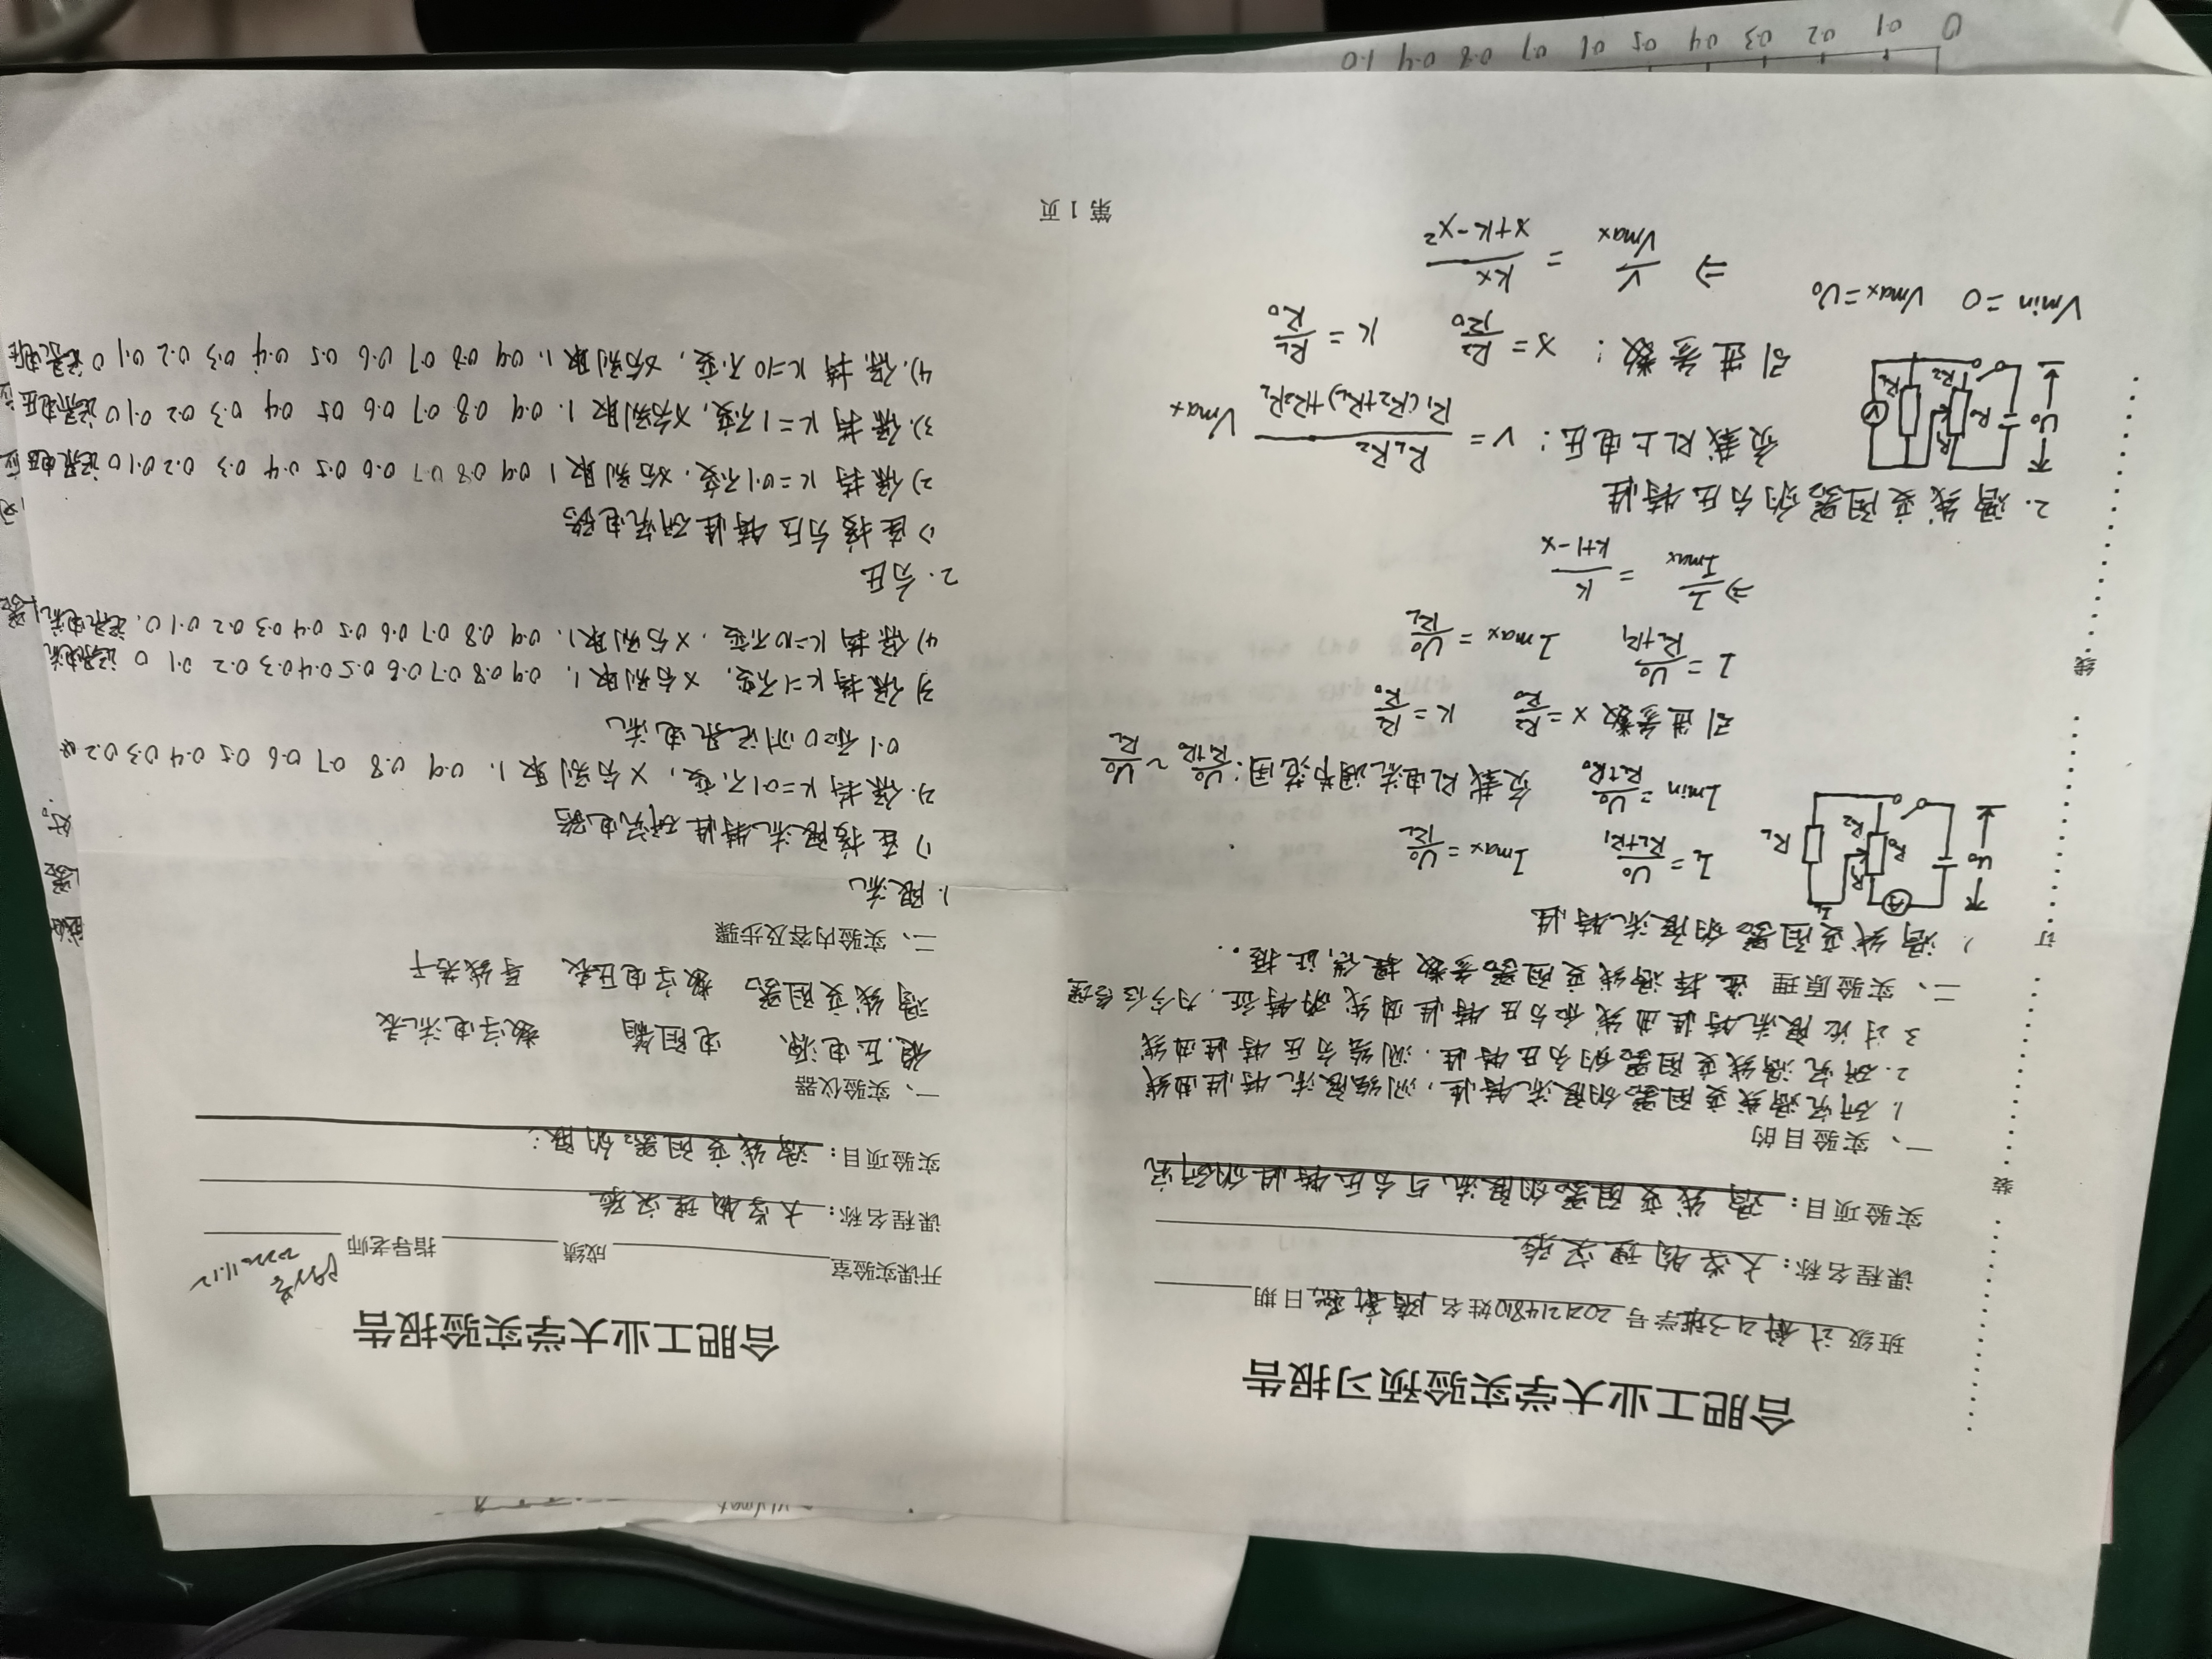 合肥工业大学实验预习报告
班级 计科21-3班 学号 2021214810 姓名 日期
课程名称：大学物理实验
实验项目：滑线变阻器的限流与分压特性的研究
一、实验目的
1. 研究滑线变阻器的限流特性，测绘限流特性曲线
2. 研究滑线变阻器的分压特性，测绘分压特性曲线
3 讨论限流特性曲线和分压特性曲线的特征，为今后合理
二、实验原理 选择滑线变阻器参数提供证据.
1) 滑线变阻器的限流特性
U₀ A R₀ R₁ R₂ R_L I_L
I_L = U₀/(R_L+R₁) I_max = U₀/R_L
I_min = U₀/(R_L+R₀) 负载RL电流调节范围: U₀/(R_L+R₀) ~ U₀/R_L
引进参数 x = R₂/R₀ K = R_L/R₀
I = U₀/(R_L+R₁) I_max = U₀/R_L
⇒ I/I_max = K/(K+1-x)
2. 滑线变阻器的分压特性
U₀ R₀ R₁ R₂ R_L V
负载RL上电压: V = R_L R₂/(R₁(R₂+R_L)+R₂R_L) V_max
引进参数: x = R₂/R₀ K = R_L/R₀
V_min = 0 V_max = U₀
⇒ V/V_max = Kx/(x+K-x²)
第 1 页
装
订
线
合肥工业大学实验报告
开课实验室 成绩 指导老师
2022.11.12
课程名称：大学物理实验
实验项目：滑线变阻器的限
一、实验仪器
稳压电源 电阻箱 数字电流表
滑线变阻器 数字电压表 导线若干
二、实验内容及步骤
1. 限流
1) 连接限流特性研究电路
2). 保持 K=0.1不变, x分别取1. 0.9 0.8 0.7 0.6 0.5 0.4 0.3 0.2
0.1 和0 测记录电流
3) 保持 K=1不变, x分别取1. 0.9 0.8 0.7 0.6 0.5 0.4 0.3 0.2 0.1 0 记录电流
4) 保持 K=10不变, x分别取1. 0.9 0.8 0.7 0.6 0.5 0.4 0.3 0.2 0.1 0. 记录电流
2. 分压
1) 连接分压特性研究电路
2) 保持 K=0.1不变. x分别取1 0.9 0.8 0.7 0.6 0.5 0.4 0.3 0.2 0.1 0 记录电压
3). 保持 K=1不变, x分别取1. 0.9 0.8 0.7 0.6 0.5 0.4 0.3 0.2 0.1 0 记录电压
4). 保持 K=10不变, x分别取1. 0.9 0.8 0.7 0.6 0.5 0.4 0.3 0.2 0.1 0 记录电压
0 0.1 0.2 0.3 0.4 0.5 0.6 0.7 0.8 0.9 1.0